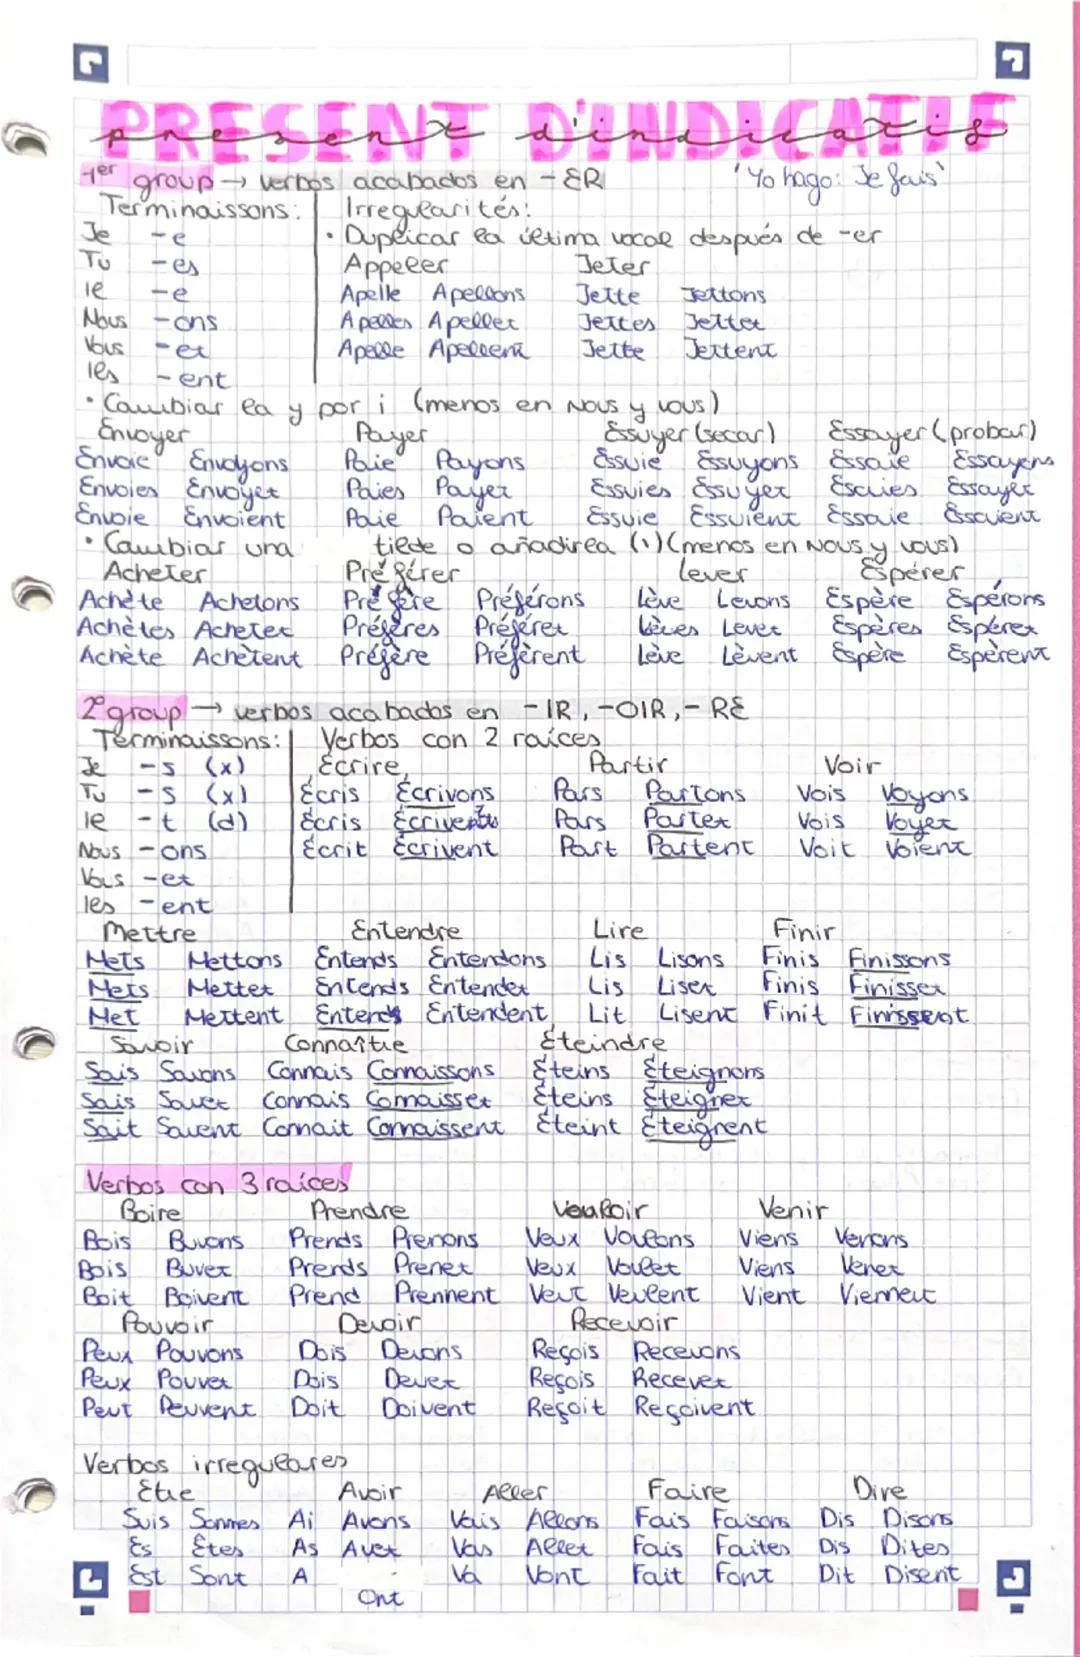 PRESENT D'INDICATIF
present d'indicatif
1er group → verbos acabados en -ER 'Yo hago: Je fais'
Terminaissons: Irregularités:
Je -e · Duplicar la última vocal después de -er
Tu -es Appeler Jeter
Il -e Apelle Apellons Jette Jettons
Nous -ons Apelles Apellez Jettes Jettez
Vous -ez Apelle Apellent Jette Jettent
Ils -ent
· Cambiar la y por i (menos en Nous y vous)
Envoyer Payer Essuyer (secar) Essayer (probar)
Envoie Envoyons Paie Payons Essuie Essuyons Essaie Essayons
Envoies Envoyez Paies Payez Essuies Essuyez Essaies Essayez
Envoie Envoient Paie Paient Essuie Essuient Essaie Essaient
· Cambiar una tilde o añadirla (\) (menos en Nous y vous)
Acheter Préférer Lever Espérer
Achète Achetons Préfère Préférons Lève Levons Espère Espérons
Achètes Achetez Préfères Préférez Lèves Levez Espères Espérez
Achète Achètent Préfère Préfèrent Lève Lèvent Espère Espèrent
2º group → verbos acabados en -IR, -OIR, -RE
Terminaissons: Verbos con 2 raíces
Je -s (x) Écrire Partir Voir
Tu -s (x) Écris Écrivons Pars Partons Vois Voyons
Il -t (d) Écris Pars Partez Vois Voyez
Nous -ons Écrit Écrivent Part Partent Voit Voient
Vous -ez
Ils -ent
Mettre Entendre Lire Finir
Mets Mettons Entends Entendons Lis Lisons Finis Finissons
Mets Mettez Entends Entendez Lis Lisez Finis Finissez
Met Mettent Entend Entendent Lit Lisent Finit Finissent
Savoir Connaître Éteindre
Sais Savons Connais Connaissons Éteins Éteignons
Sais Savez Connais Connaissez Éteins Éteignez
Sait Savent Connait Connaissent Éteint Éteignent
Verbos con 3 raíces
Boire Prendre Vouloir Venir
Bois Buvons Prends Prenons Veux Voulons Viens Venons
Bois Buvez Prends Prenez Veux Voulez Viens Venez
Boit Boivent Prend Prennent Veut Veulent Vient Viennent
Pouvoir Devoir Recevoir
Peux Pouvons Dois Devons Reçois Recevons
Peux Pouvez Dois Devez Reçois Recevez
Peut Peuvent Doit Doivent Reçoit Reçoivent
Verbos irregulares
Être Avoir Aller Faire Dire
Suis Sommes Ai Avons Vais Allons Fais Faisons Dis Disons
Es Êtes As Avez Vas Allez Fais Faites Dis Dites
Est Sont A Va Vont Fait Font Dit Disent
Ont